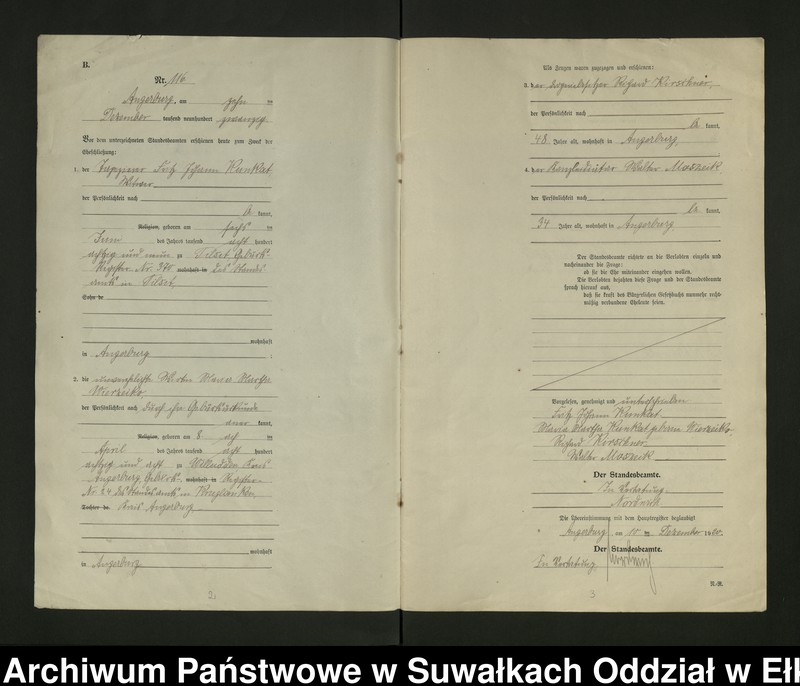 B.
Nr. 116
Angerburg, am zehn ten
Dezember tausend neunhundert zwanzig
Vor dem unterzeichneten Standesbeamten erschienen heute zum Zweck der
Eheschließung:
1. der Fritz Johann Kunkat
der Persönlichkeit nach
be kannt,
Religion, geboren am sechs ten
Juni des Jahres tausend acht hundert
achtzig und neun zu Tilsit, Geburts-
Register Nr. 370 wohnhaft in des Standes
amts in Tilsit
Sohn de
wohnhaft
in Angerburg ;
2. die Maria Martha
Wierzeiko
der Persönlichkeit nach durch ihre Geburtsurkunde
aner kannt,
Religion, geboren am 8. ach ten
April des Jahres tausend acht hundert
achtzig und acht zu Kreis
Angerburg, Geburts- wohnhaft in Register
Nr 24 des Standesamts in Kruglanken
Tochter de Kreis Angerburg
wohnhaft
in Angerburg
2
Als Zeugen waren zugezogen und erschienen:
3. der Richard Korschner,
der Persönlichkeit nach
be kannt,
48 Jahre alt, wohnhaft in Angerburg,
4. der Walter Moszeik
der Persönlichkeit nach
be kannt,
34 Jahre alt, wohnhaft in Angerburg
Der Standesbeamte richtete an die Verlobten einzeln und
nacheinander die Frage:
ob sie die Ehe miteinander eingehen wollen.
Die Verlobten bejahten diese Frage und der Standesbeamte
sprach hierauf aus,
daß sie kraft des Bürgerlichen Gesetzbuchs nunmehr recht-
mäßig verbundene Eheleute seien.
Vorgelesen, genehmigt und unterschrieben
Fritz Johann Kunkat
Maria Martha Kunkat geborene Wierzeiko
Richard Korschner
Walter Moszeik
Der Standesbeamte.
In Vertretung
Die Übereinstimmung mit dem Hauptregister beglaubigt
Angerburg, am 10 ten Dezember 1920.
Der Standesbeamte.
In Vertretung
R.-R.
3
Archiwum Państwowe w Suwałkach Oddział w Ełk